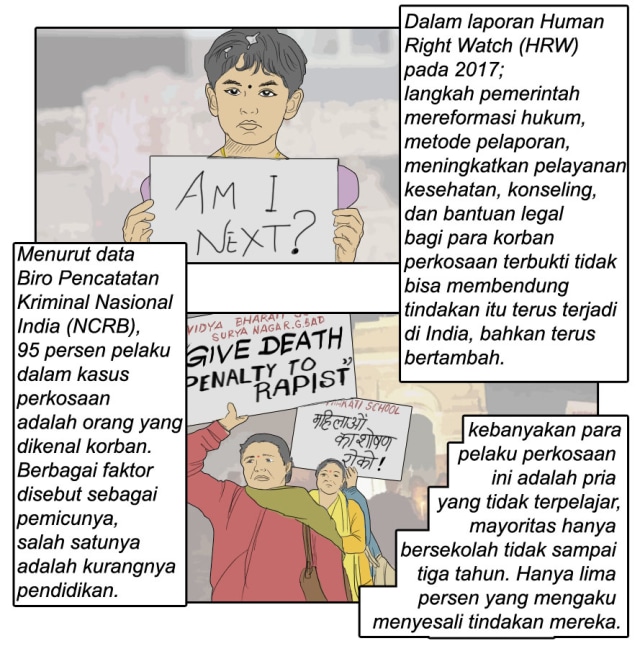 Dalam laporan Human
Right Watch (HRW)
pada 2017;
langkah pemerintah
mereformasi hukum,
metode pelaporan,
meningkatkan pelayanan
kesehatan, konseling,
dan bantuan legal
bagi para korban
perkosaan terbukti tidak
bisa membendung
tindakan itu terus terjadi
di India, bahkan terus
bertambah.
AM I
NEXT?
Menurut data
Biro Pencatatan
Kriminal Nasional
India (NCRB),
95 persen pelaku
dalam kasus
perkosaan
adalah orang yang
dikenal korban.
Berbagai faktor
disebut sebagai
pemicunya,
salah satunya
adalah kurangnya
pendidikan.
VIDYA BHARATI
SURYA NAGAR.G.BAD
"GIVE DEATH
PENALTY TO
RAPIST"
SCHOOL
महिलाओं
का शोषण
रोको!
kebanyakan para
pelaku perkosaan
ini adalah pria
yang tidak terpelajar,
mayoritas hanya
bersekolah tidak sampai
tiga tahun. Hanya lima
persen yang mengaku
menyesali tindakan mereka.